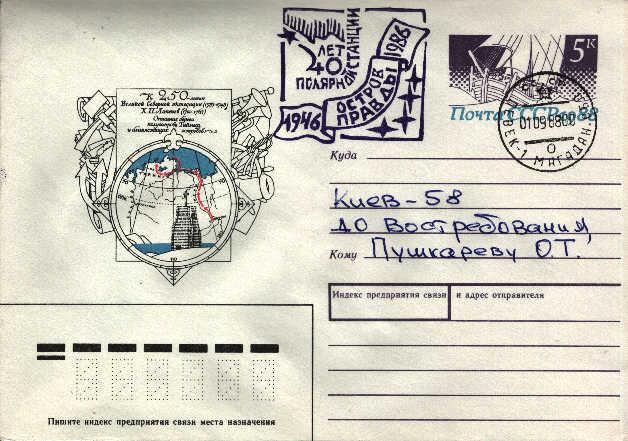 40 ЛЕТ
ПОЛЯРНОЙ СТАНЦИИ
ОСТРОВ
ПРАВДЫ
1946
1986
5к
Почта СССР 1988
ПЕВЕК-1 МАГАДАН. ОБ.
010988
К 250-летию
Великой Северной экспедиции (1733-1743)
Х.П. Лаптев
Описание берега
полуострова Таймыр
и близлежащих островов
Куда
Киев-58
до востребования,
Кому Пушкареву О.Т.
Индекс предприятия связи и адрес отправителя
Пишите индекс предприятия связи места назначения